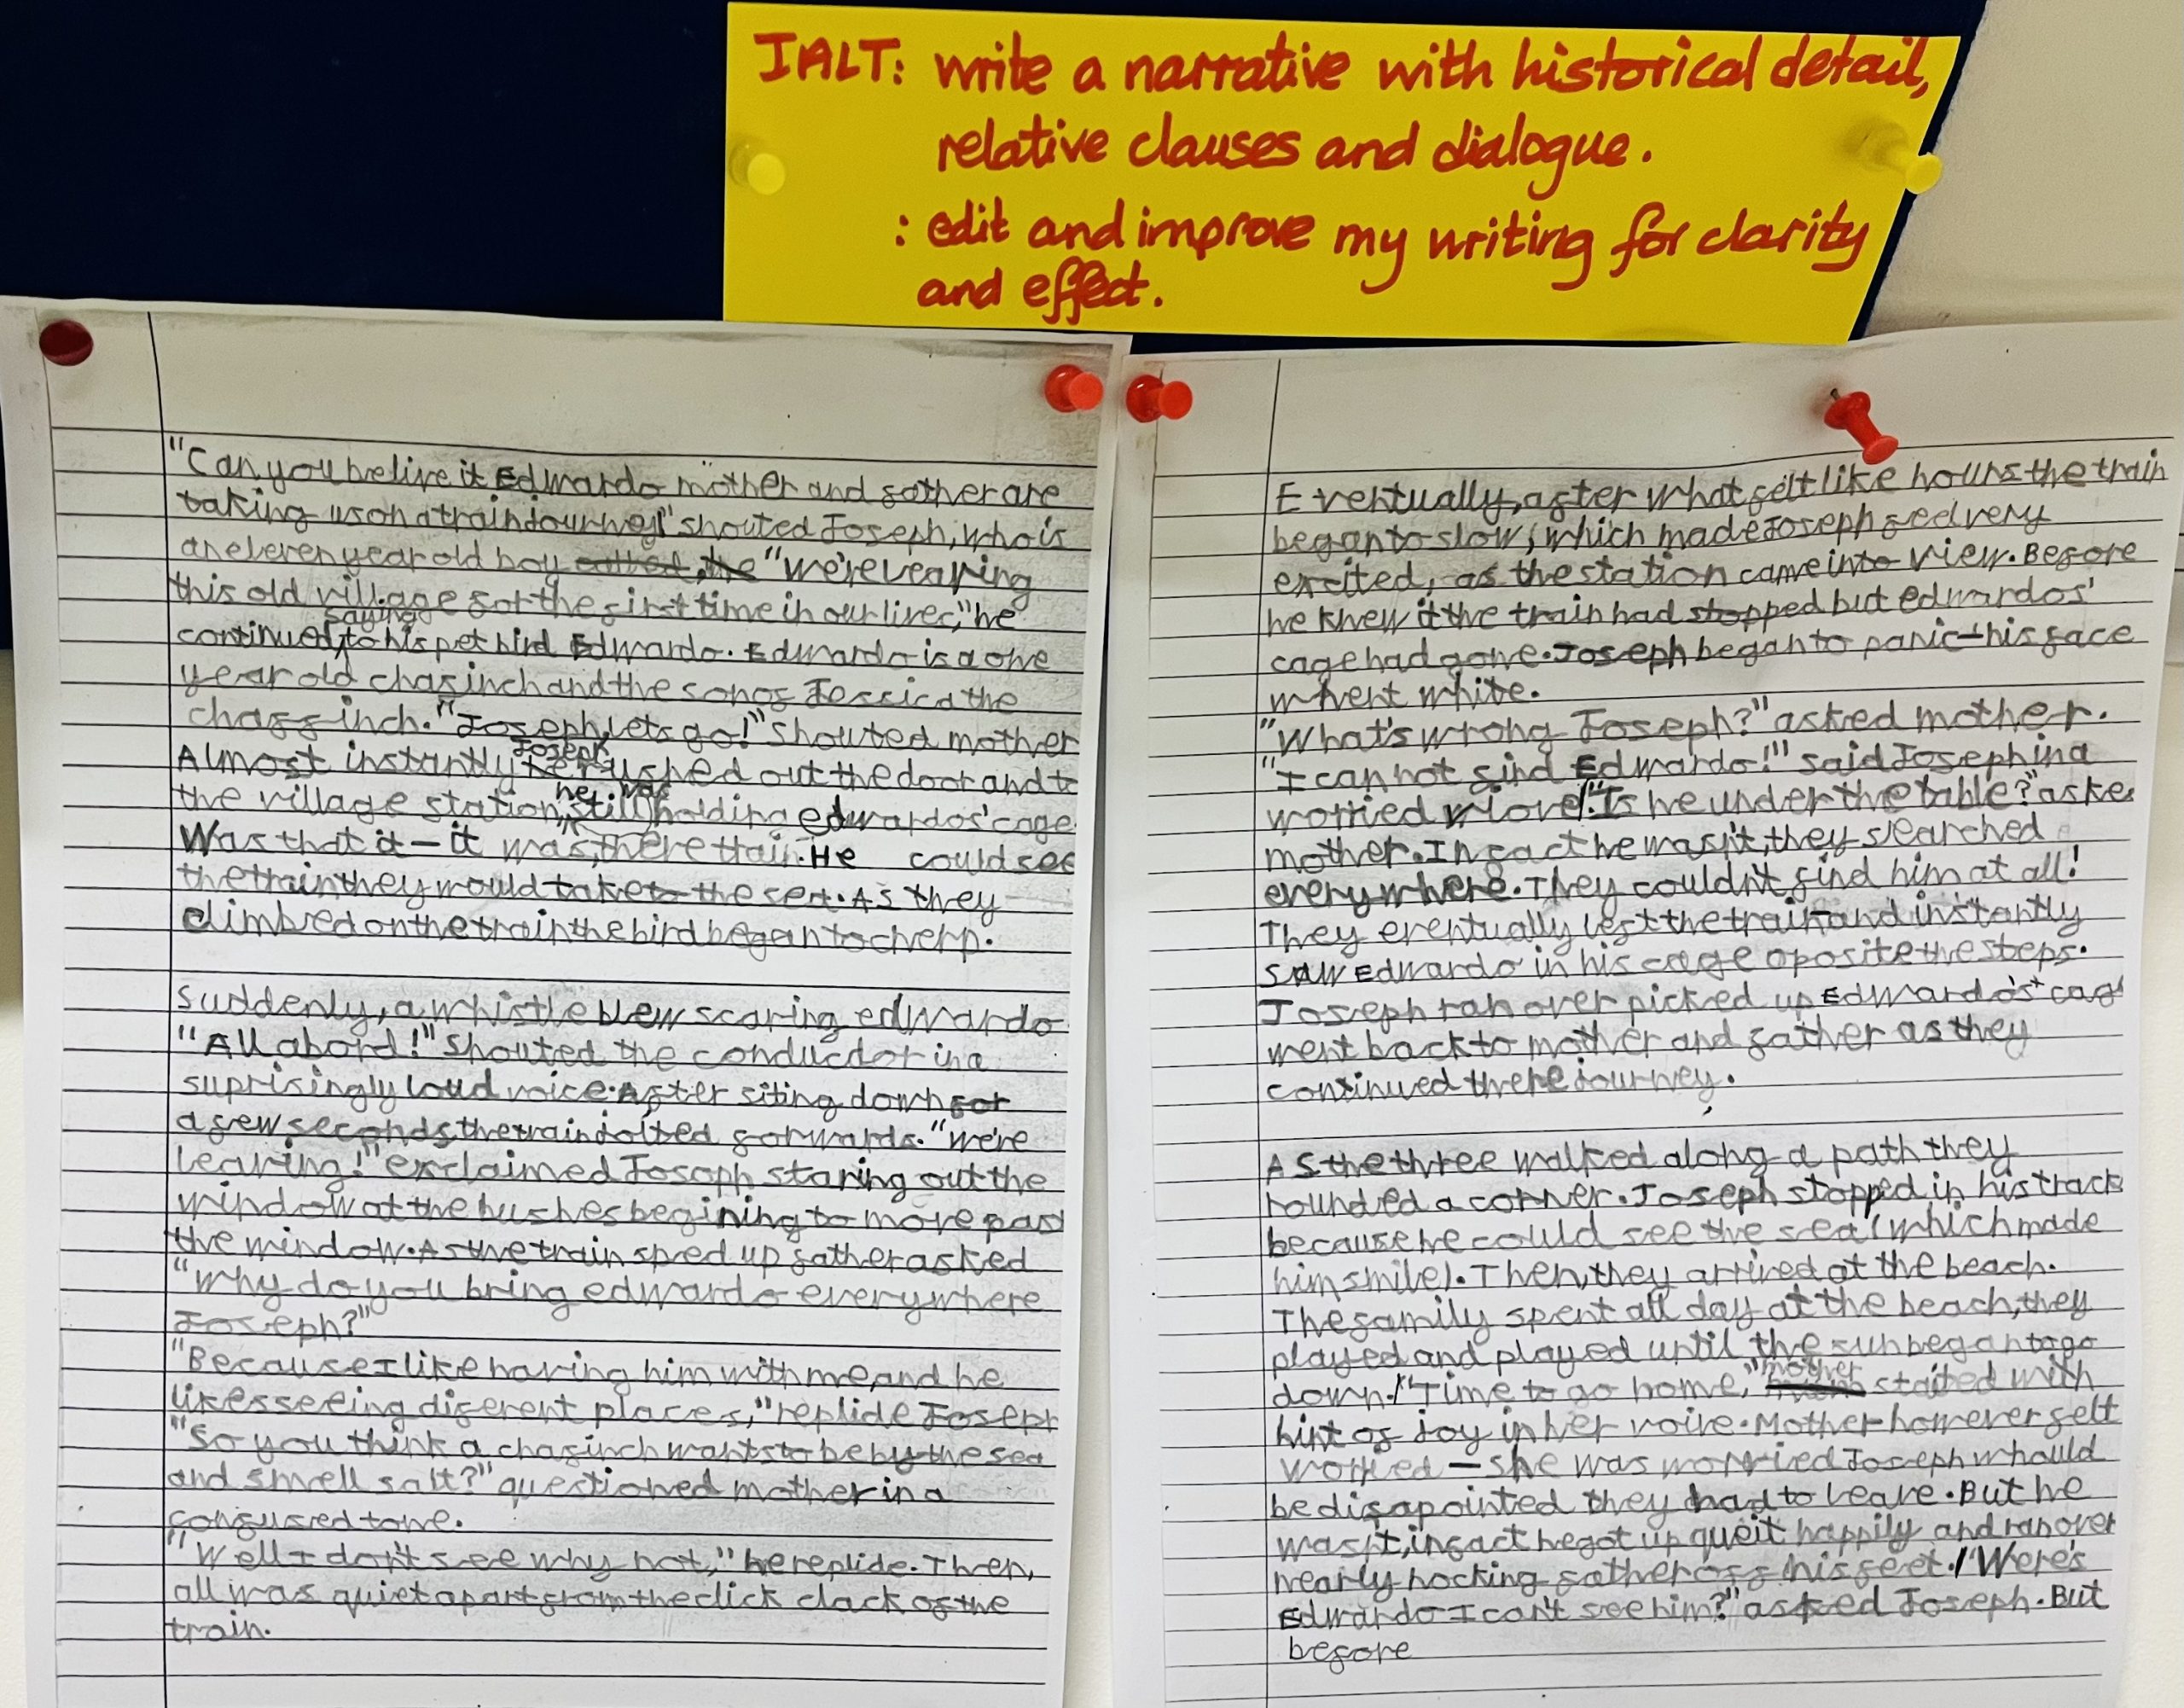 IALT: write a narrative with historical detail,
relative clauses and dialogue.
: edit and improve my writing for clarity
and effect.
"Can you belive it Edwardo mother and father are
taking us on a train journey!" shouted Joseph, who is
an eleven year old boy called, the "We're leaving
this old village for the first time in our lives," he
continued, saying to his pet bird Edwardo. Edwardo is a one
year old chafinch and the son of Jessica the
chaffinch. "Joseph, lets go!" shouted mother
Almost instantly he Joseph rushed out the door and to
the village station, he was still holding edwardos' cage.
Was that it - it was, there train. He could see
the train they would take to the sea. As they
climbed on the train the bird began to cherp.
Suddenly, a whistle blew scaring edwardo
"All abord!" shouted the conductor in a
suprisingly loud voice. After siting down for
a few seconds, the train jolted forwards. "We're
leaving!" exclaimed Joseph staring out the
window at the bushes begining to move past
the window. As the train sped up father asked
"Why do you bring edwardo everywhere
Joseph?"
"Because I like having him with me, and he
likes seeing diferent places," replide Joseph
"So you think a chafinch wants to be by the sea
and smell salt?" questioned mother in a
confused tone.
"Well I don't see why not," he replide. Then,
all was quiet apart from the click clack of the
train.
Eventually, after what felt like hours the train
began to slow, which made Joseph feel very
excited, as the station came into view. Before
he knew it the train had stopped but edwardos'
cage had gone. Joseph began to panic - his face
whent white.
"What's wrong Joseph?" asked mother.
"I can not find Edwardo!" said Joseph in a
worried voice. "Is he under the table?" aske
mother. In fact he wasn't, they searched
everywhere. They couldn't find him at all!
They eventually left the train and instantly
saw Edwardo in his cage oposite the steps.
Joseph ran over picked up Edwardo's cag
went back to mother and father as they
continued there journey.
As the three walked along a path they
rounded a corner. Joseph stopped in his track
because he could see the sea (which made
him smile). Then, they arrived at the beach.
The family spent all day at the beach, they
played and played until the sun began to go
down. "Time to go home," mother stated with
hint of joy in her voice. Mother however felt
worried - she was worried Joseph whould
be disapointed they had to leave. But he
wasn't, in fact he got up queit happily and ran over
nearly nocking father off his feet. "Were's
Edwardo I can't see him?" asked Joseph. But
before